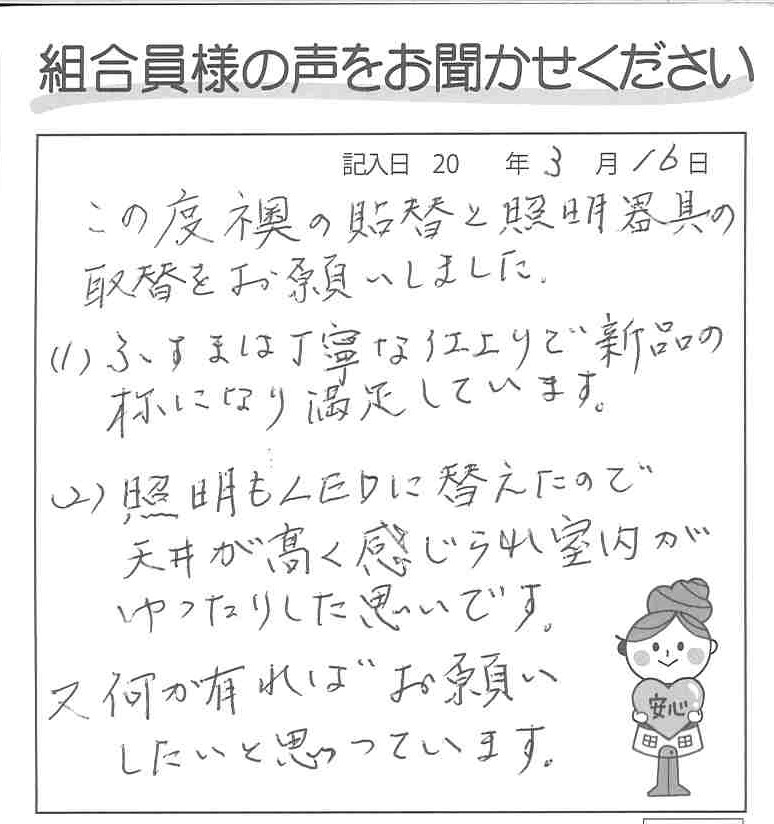 組合員様の声をお聞かせください
記入日 20 年 3 月 16 日
この度襖の貼替と照明器具の
取替をお願いしました.
(1) ふすまは丁寧な仕上りで新品の
様になり満足しています。
(2) 照明もLEDに替えたので
天井が高く感じられ室内が
ゆったりした思いです。
又何か有ればお願い
したいと思っています。
安心